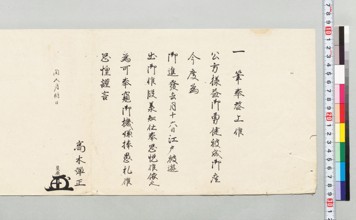 一筆奉啓上候
公方様益御勇健被成御座
今度為
御進發去月十六日江戸被遊
出御候段義知仕奉恐悦候依之
為可奉窺御機嫌捧愚札候
恐惶謹言
高木弾正